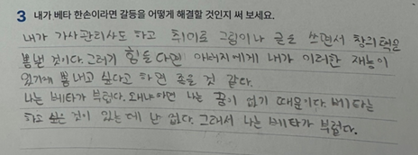 3 내가 베타 한손이라면 갈등을 어떻게 해결할 것인지 써 보세요.
내가 가사관리사도 하고 취미로 그림이나 글을 쓰면서 창의력을
뽐낼 것이다. 그러기 힘들다면 아버지에게 내가 이러한 재능이
있기에 뽐내고 싶다고 하면 좋을 것 같다.
나는 베타가 부럽다. 왜냐하면 나는 꿈이 없기 때문이다. 베타는
하고 싶은 것이 있는데 난 없다. 그래서 나는 베타가 부럽다.